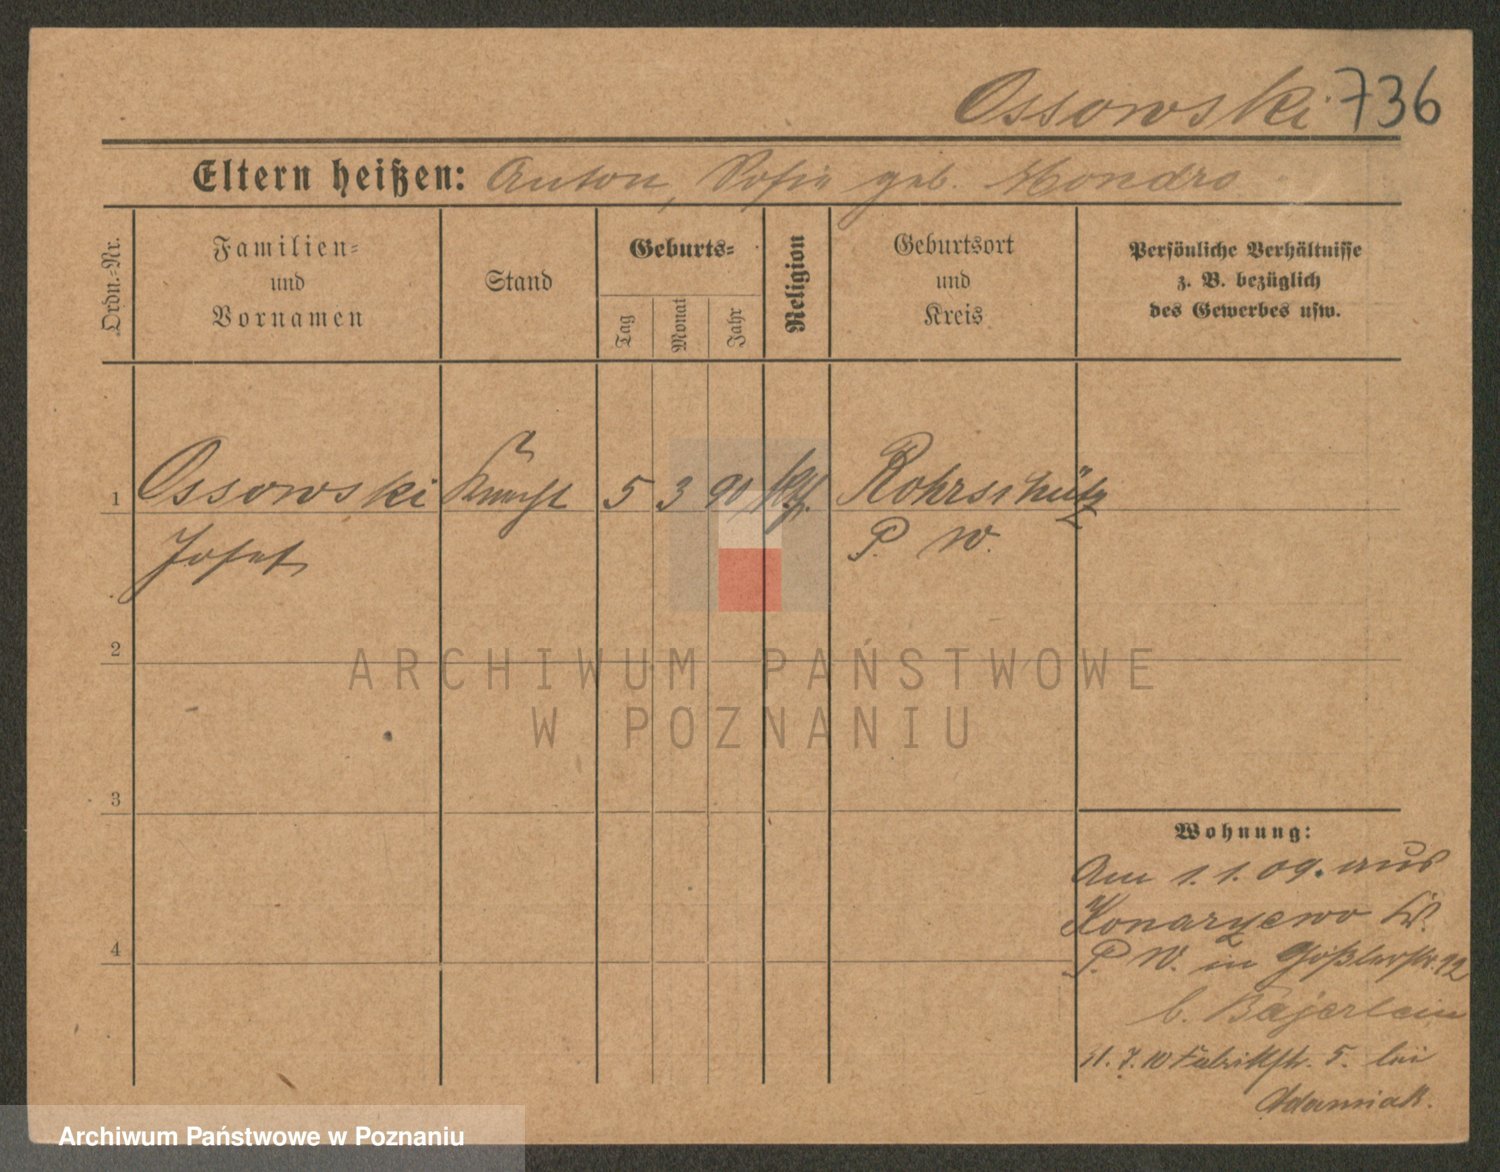 Ossowski 736
Eltern heißen: Anton, Sofie geb. Mondro
Ordn.-Nr.
Familien-
und
Vornamen
Stand
Geburts-
Tag
Monat
Jahr
Religion
Geburtsort
und
Kreis
Persönliche Verhältnisse
z. B. bezüglich
des Gewerbes usw.
1 Ossowski Knecht 5 3 90 kath. Rohrschütz
Josef P. W.
2
3
4
Wohnung:
Am 1. 1. 09. aus
Konarzewo Kr.
P. W. in Gößlerstr. 12
b. Bajerlein
11. 7. 10 Fabrikstr. 5. bei
Adamiak.
ARCHIWUM PAŃSTWOWE
W POZNANIU
Archiwum Państwowe w Poznaniu